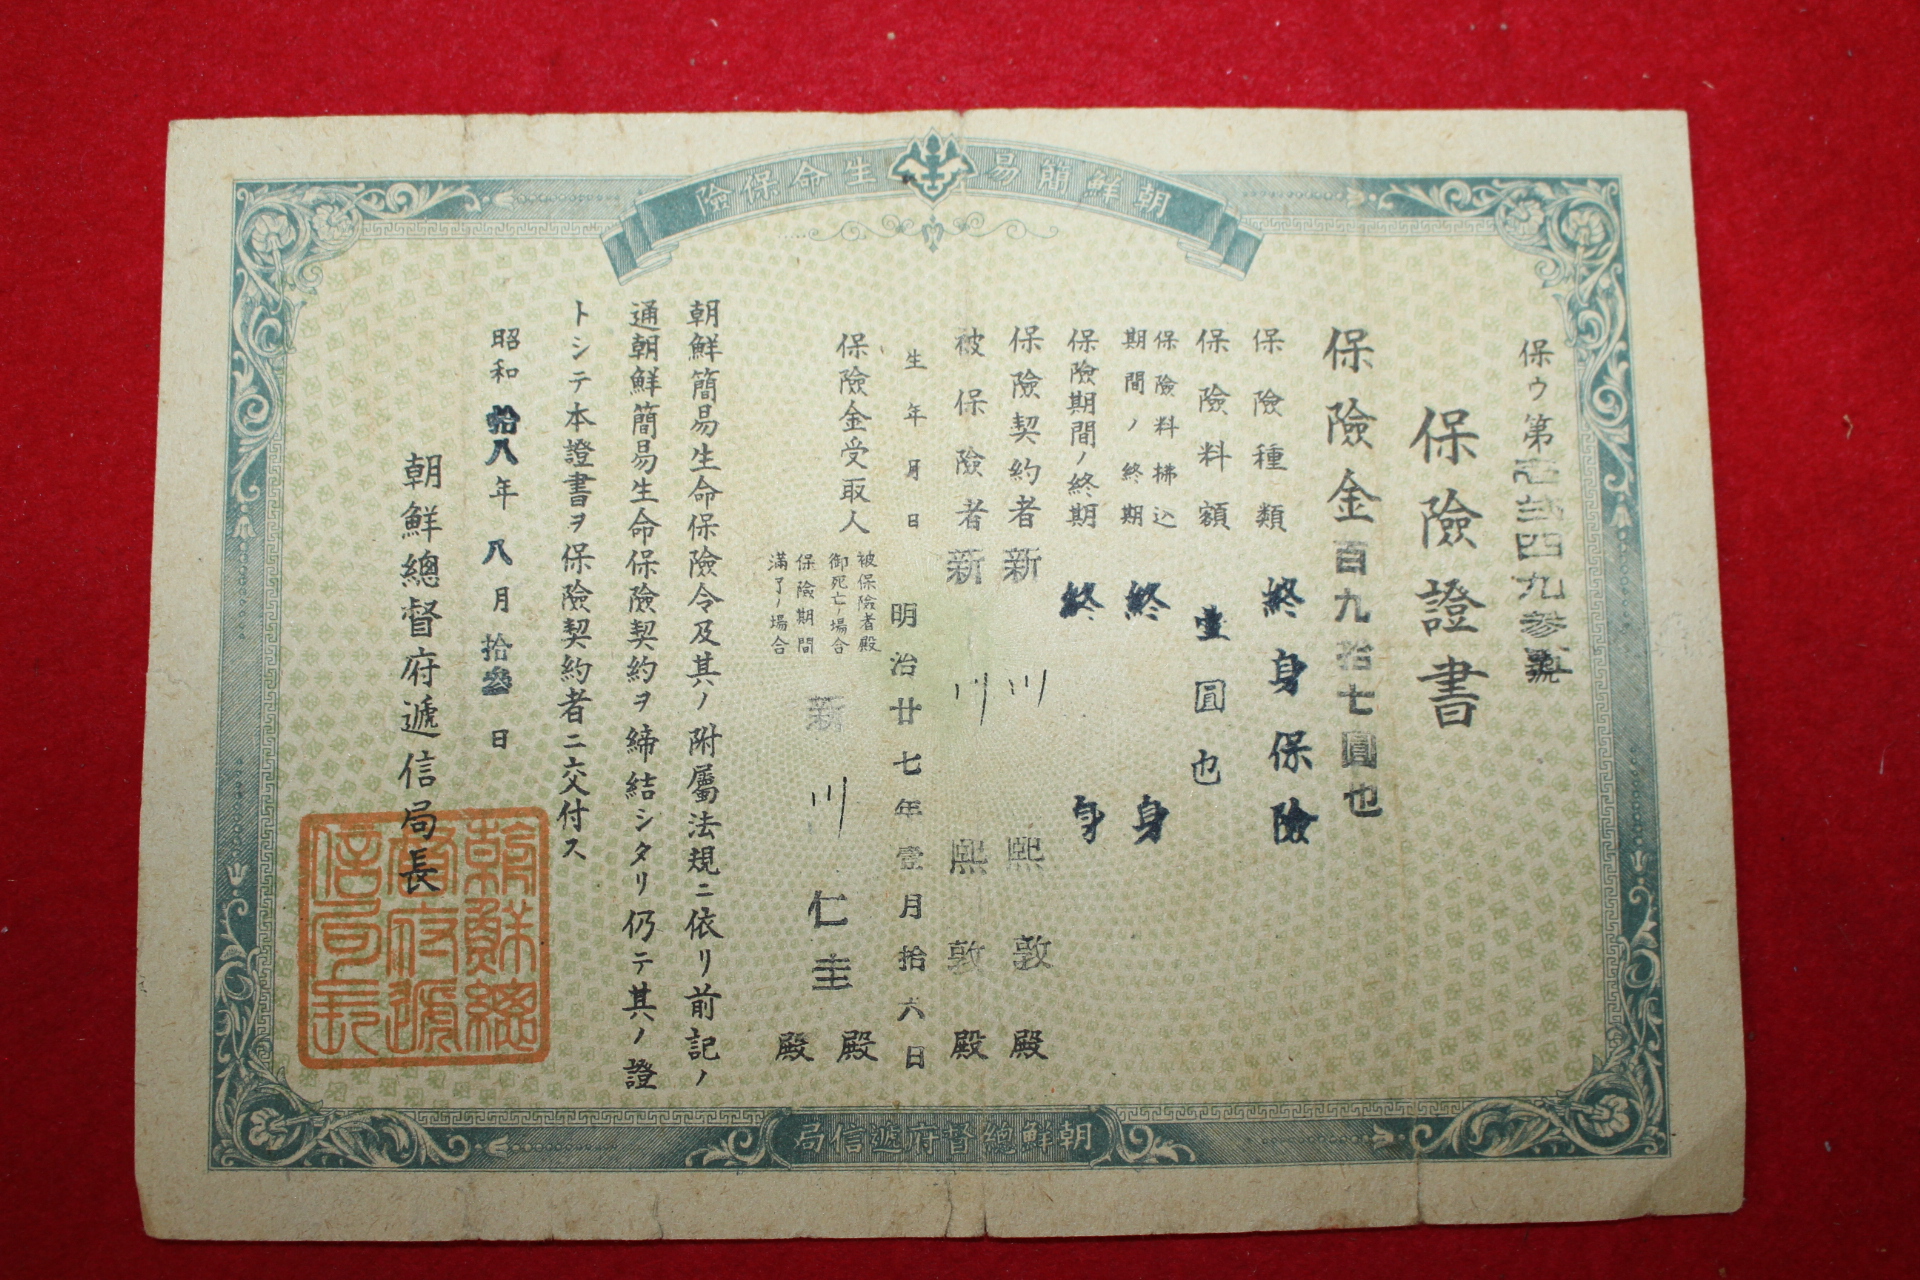 朝鮮簡易生命保險
保ウ第壱弐四九参號
保險證書
保險金百九拾七圓也
保險種類 終身保險
保險料額 壹圓也
保險料拂込期間ノ終期 終身
保險期間ノ終期 終身
保險契約者 新川熙敦殿
被保險者 新川熙敦殿
生年月日 明治廿七年壹月拾六日
保險金受取人
被保險者殿御死亡ノ場合 殿
保險期間滿了ノ場合 殿
新川仁圭
朝鮮簡易生命保險令及其ノ附屬法規ニ依リ前記ノ
通朝鮮簡易生命保險契約ヲ締結シタリ仍テ其ノ證
トシテ本證書ヲ保險契約者ニ交付ス
昭和拾八年八月拾參日
朝鮮總督府遞信局長
朝鮮總督府遞信局長
朝鮮總督府遞信局